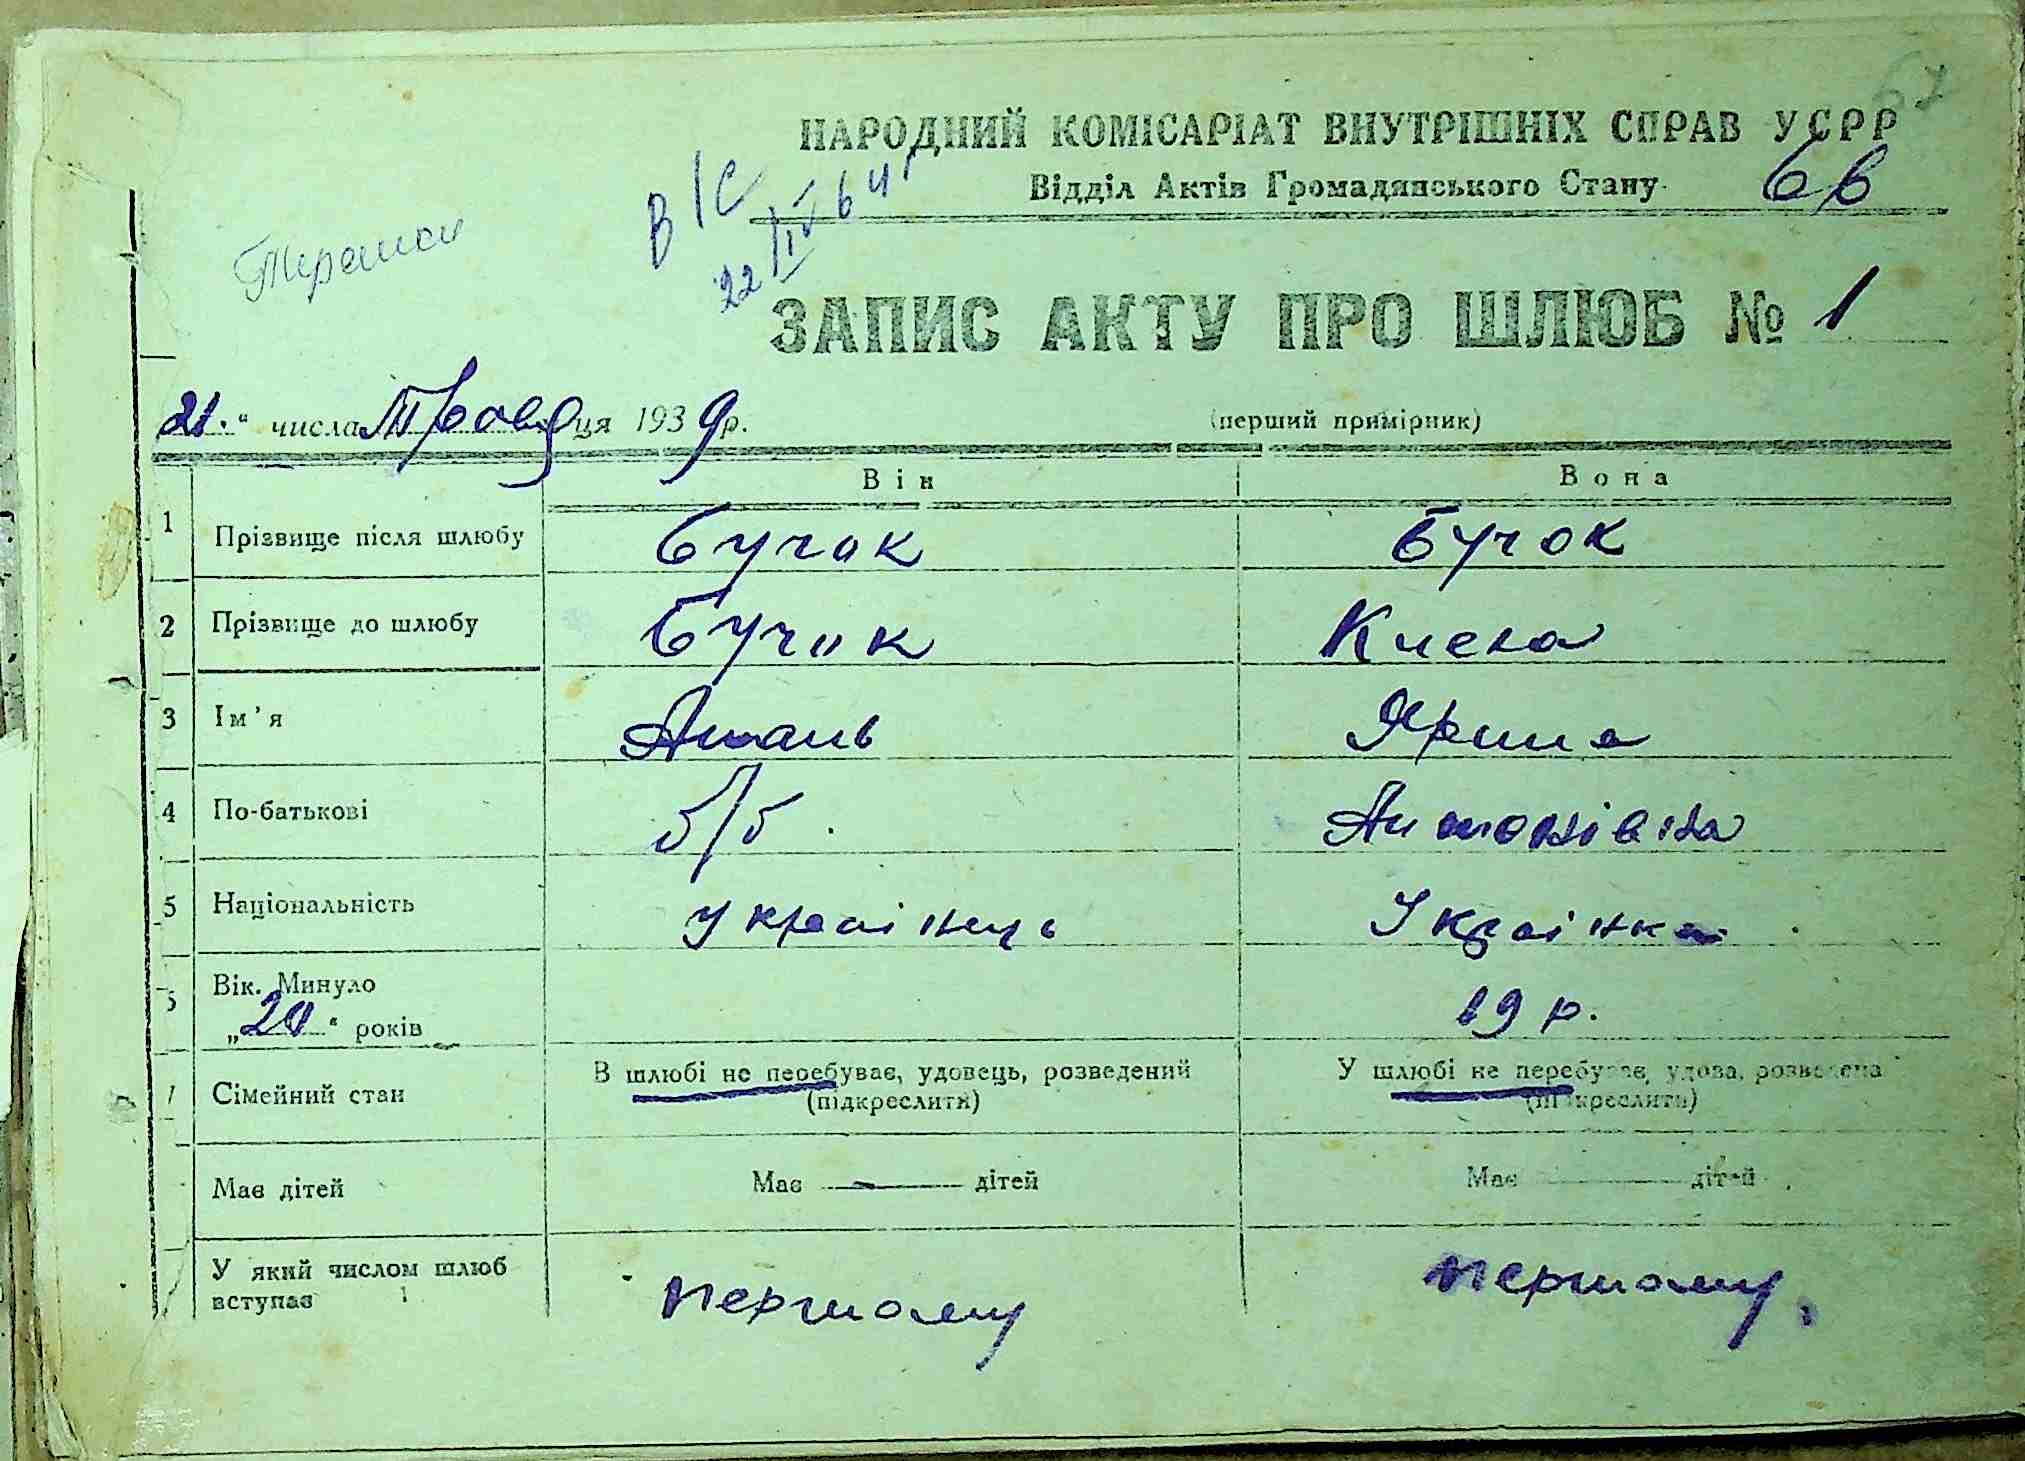 НАРОДНИЙ КОМІСАРІАТ ВНУТРІШНІХ СПРАВ УСРР
Відділ Актів Громадянського Стану
В/С
22/IV 64 г
ЗАПИС АКТУ ПРО ШЛЮБ № 1
21." числа Травця 1939 р. (перший примірник)
Він Вона
1 Прізвище після шлюбу Бучок Бучок
2 Прізвище до шлюбу Бучок
3 Ім'я Ярина
4 По-батькові б/б. Антонівна
5 Національність Українець Українка
Вік. Минуло
„20" років 19 р.
Сімейний стан В шлюбі не перебуває, удовець, розведений У шлюбі не перебуває, удова, розведена
(підкреслити) (підкреслить)
Має дітей Має — дітей Має дітей
У який числом шлюб
вступає першому першому